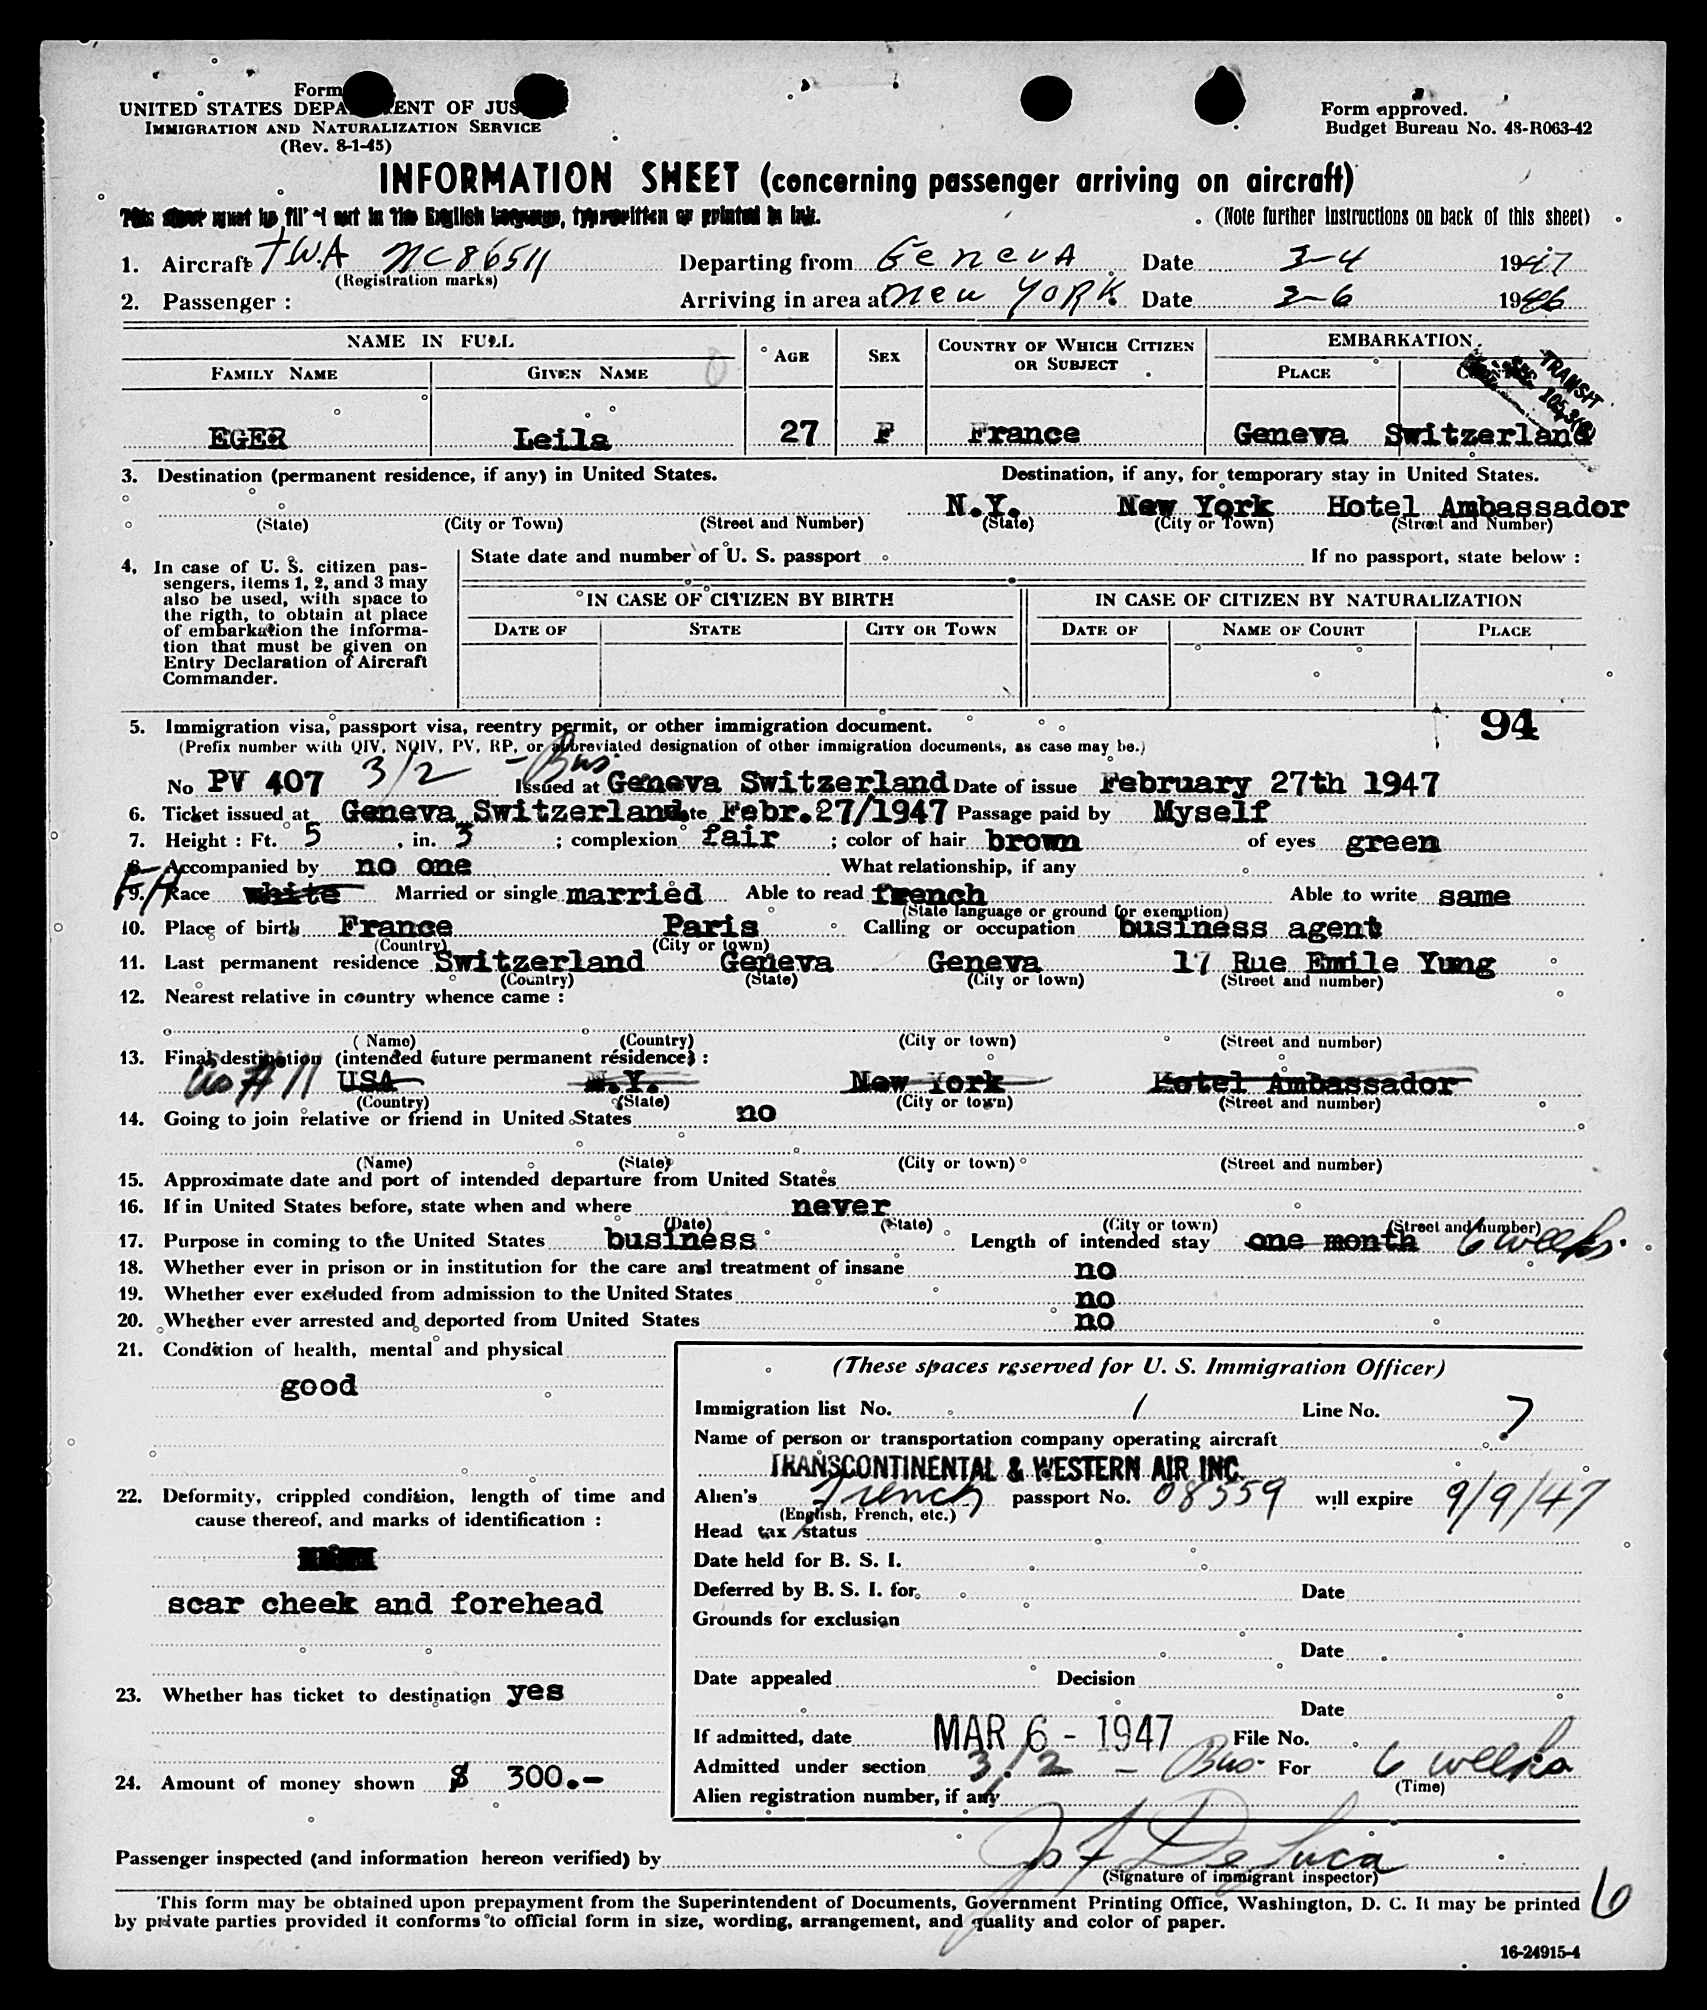 Form
UNITED STATES DEPA ENT OF JUS
IMMIGRATION AND NATURALIZATION SERVICE
(Rev. 8-1-45)
Form approved.
Budget Bureau No. 48-R063-42
INFORMATION SHEET (concerning passenger arriving on aircraft)
This sheet must be fill out in the English language, typewritten or printed in ink. (Note further instructions on back of this sheet)
1. Aircraft TWA NC86511 Departing from Geneva Date 3-4 1947
(Registration marks)
2. Passenger : Arriving in area at New York Date 3-6 1946
NAME IN FULL AGE SEX COUNTRY OF WHICH CITIZEN OR SUBJECT EMBARKATION
FAMILY NAME GIVEN NAME PLACE
TRANSIT
EGER Leila 27 F France Geneva Switzerland
3. Destination (permanent residence, if any) in United States. Destination, if any, for temporary stay in United States.
N.Y. New York Hotel Ambassador
(State) (City or Town) (Street and Number) (State) (City or Town) (Street and Number)
4. In case of U. S. citizen pas-
sengers, items 1, 2, and 3 may
also be used, with space to
the rigth, to obtain at place
of embarkation the informa-
tion that must be given on
Entry Declaration of Aircraft
Commander.
State date and number of U. S. passport If no passport, state below :
IN CASE OF CITIZEN BY BIRTH IN CASE OF CITIZEN BY NATURALIZATION
DATE OF STATE CITY OR TOWN DATE OF NAME OF COURT PLACE
94
5. Immigration visa, passport visa, reentry permit, or other immigration document.
(Prefix number with QIV, NQIV, PV, RP, or abbreviated designation of other immigration documents, as case may be.)
No PV 407 3/2 - Bus. Issued at Geneva Switzerland Date of issue February 27th 1947
6. Ticket issued at Geneva Switzerland Date Febr.27/1947 Passage paid by Myself
7. Height : Ft. 5 , in. 3 ; complexion fair ; color of hair brown of eyes green
8. Accompanied by no one What relationship, if any
9. Race white Married or single married Able to read french Able to write same
(State language or ground for exemption)
10. Place of birth France Paris Calling or occupation business agent
(Country) (City or town)
11. Last permanent residence Switzerland Geneva Geneva 17 Rue Emile Yung
(Country) (State) (City or town) (Street and number)
12. Nearest relative in country whence came :
( Name) (Country) (City or town) (Street and number)
13. Final destination (intended future permanent résidence) :
USA N.Y. New York Hotel Ambassador
(Country) (State) (City or town) (Street and number)
14. Going to join relative or friend in United States no
(Name) (State) (City or town) (Street and number)
15. Approximate date and port of intended departure from United States
16. If in United States before, state when and where never
(Date) (State) (City or town) (Street and number)
17. Purpose in coming to the United States business Length of intended stay one month 6 weeks.
18. Whether ever in prison or in institution for the care and treatment of insane no
19. Whether ever excluded from admission to the United States no
20. Whether ever arrested and deported from United States no
21. Condition of health, mental and physical
good
22. Deformity, crippled condition, length of time and
cause thereof, and marks of identification :
scar cheek and forehead
23. Whether has ticket to destination yes
24. Amount of money shown $ 300.-
(These spaces reserved for U. S. Immigration Officer)
Immigration list No. 1 Line No. 7
Name of person or transportation company operating aircraft
TRANSCONTINENTAL & WESTERN AIR INC.
Alien's French passport No. 08559 will expire 9/9/47
(English, French, etc.)
Head tax status
Date held for B. S. I.
Deferred by B. S. I. for Date
Grounds for exclusion
Date
Date appealed Decision
Date
If admitted, date MAR 6 - 1947 File No.
Admitted under section 3/2 - Bus. For 6 weeks
(Time)
Alien registration number, if any
Passenger inspected (and information hereon verified) by Jos F De Luca
(Signature of immigrant inspector)
This form may be obtained upon prepayment from the Superintendent of Documents, Government Printing Office, Washington, D. C. It may be printed
by private parties provided it conforms to official form in size, wording, arrangement, and quality and color of paper.
6
16-24915-4